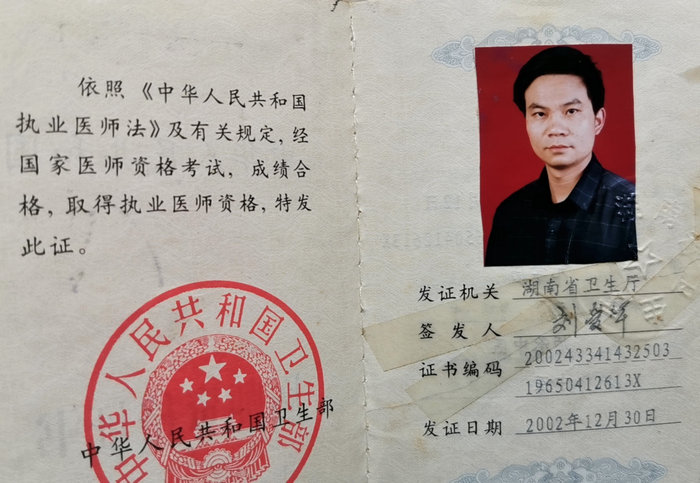 依照《中华人民共和国
执业医师法》及有关规定,经
国家医师资格考试, 成绩合
格,取得执业医师资格,特发
此证。
中华人民共和国卫生部
中华人民共和国卫生部
发证机关 湖南省卫生厅
签发人
证书编码 200243341432503
19650412613X
发证日期 2002年12月30日